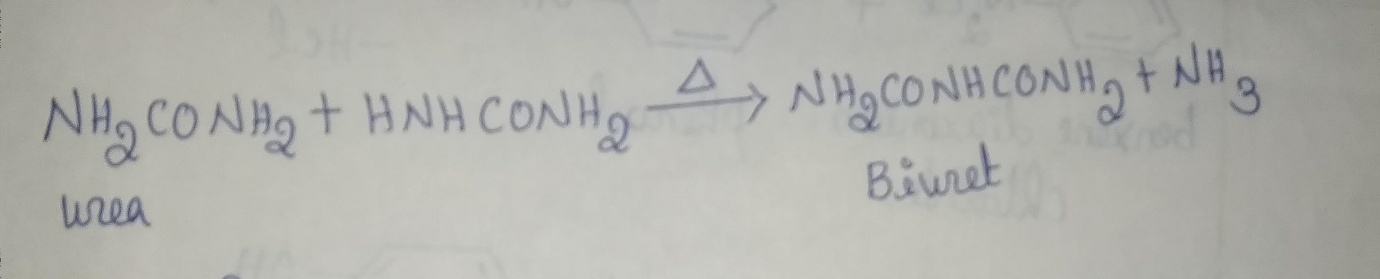 NH₂CONH₂ + HNHCONH₂ —Δ→ NH₂CONHCONH₂ + NH₃
urea Biuret